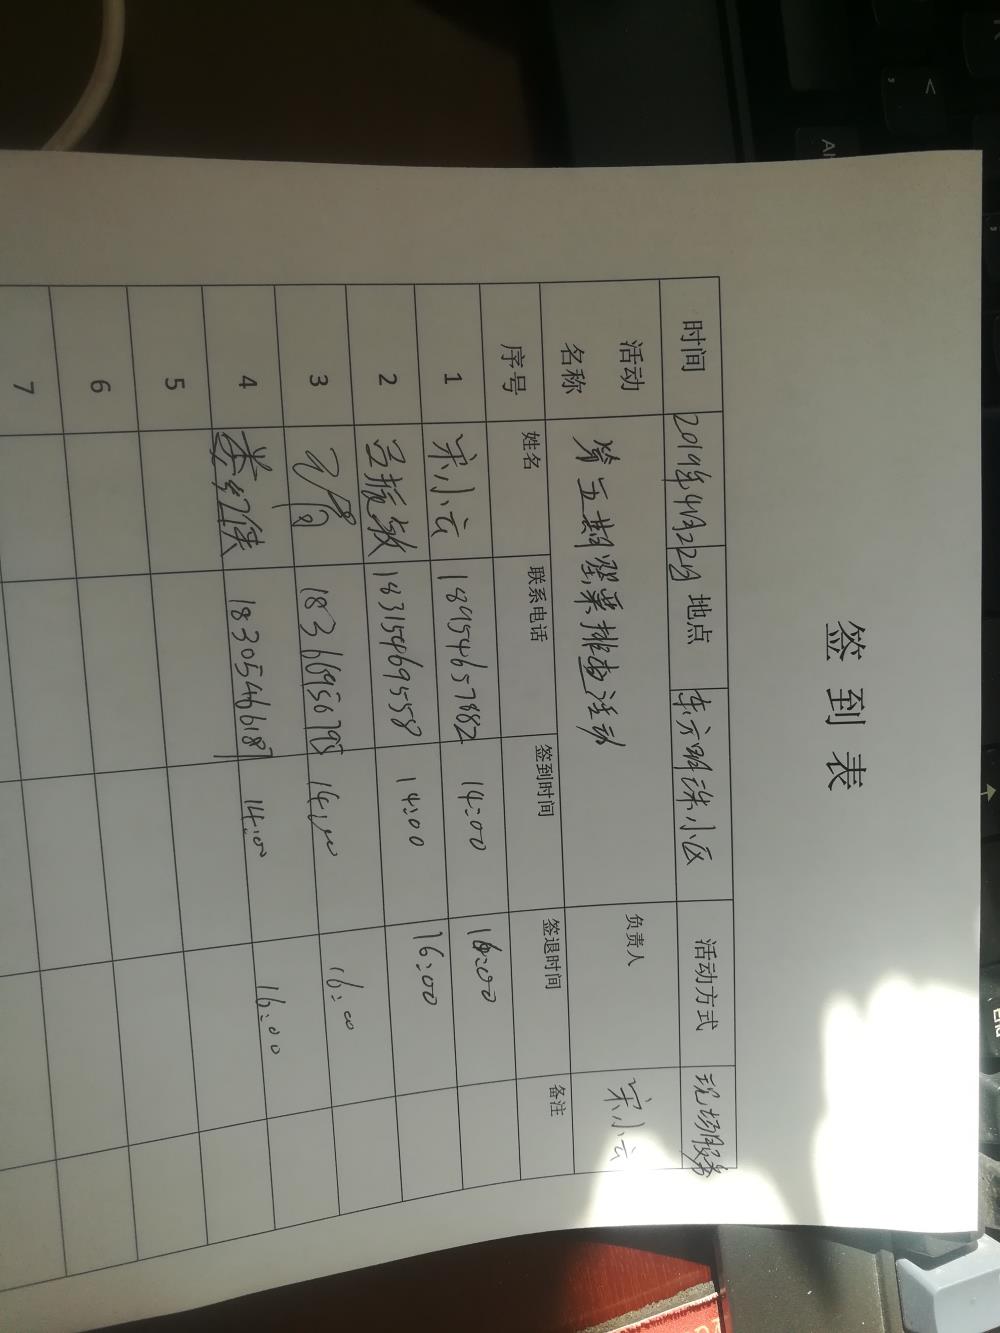 签到表
时间 2019年4月22日 地点 东六明珠小区 活动方式 现场服务
活动名称 第五期罂粟排查活动 负责人 宋小云
序号 姓名 联系电话 签到时间 签退时间 备注
1 宋小云 18954657882 14:00 16:00
2 吕振敏 18315469558 14:00 16:00
3 14:00 16:00
4 娄红侠 18305466187 14:00 16:00
5
6
7